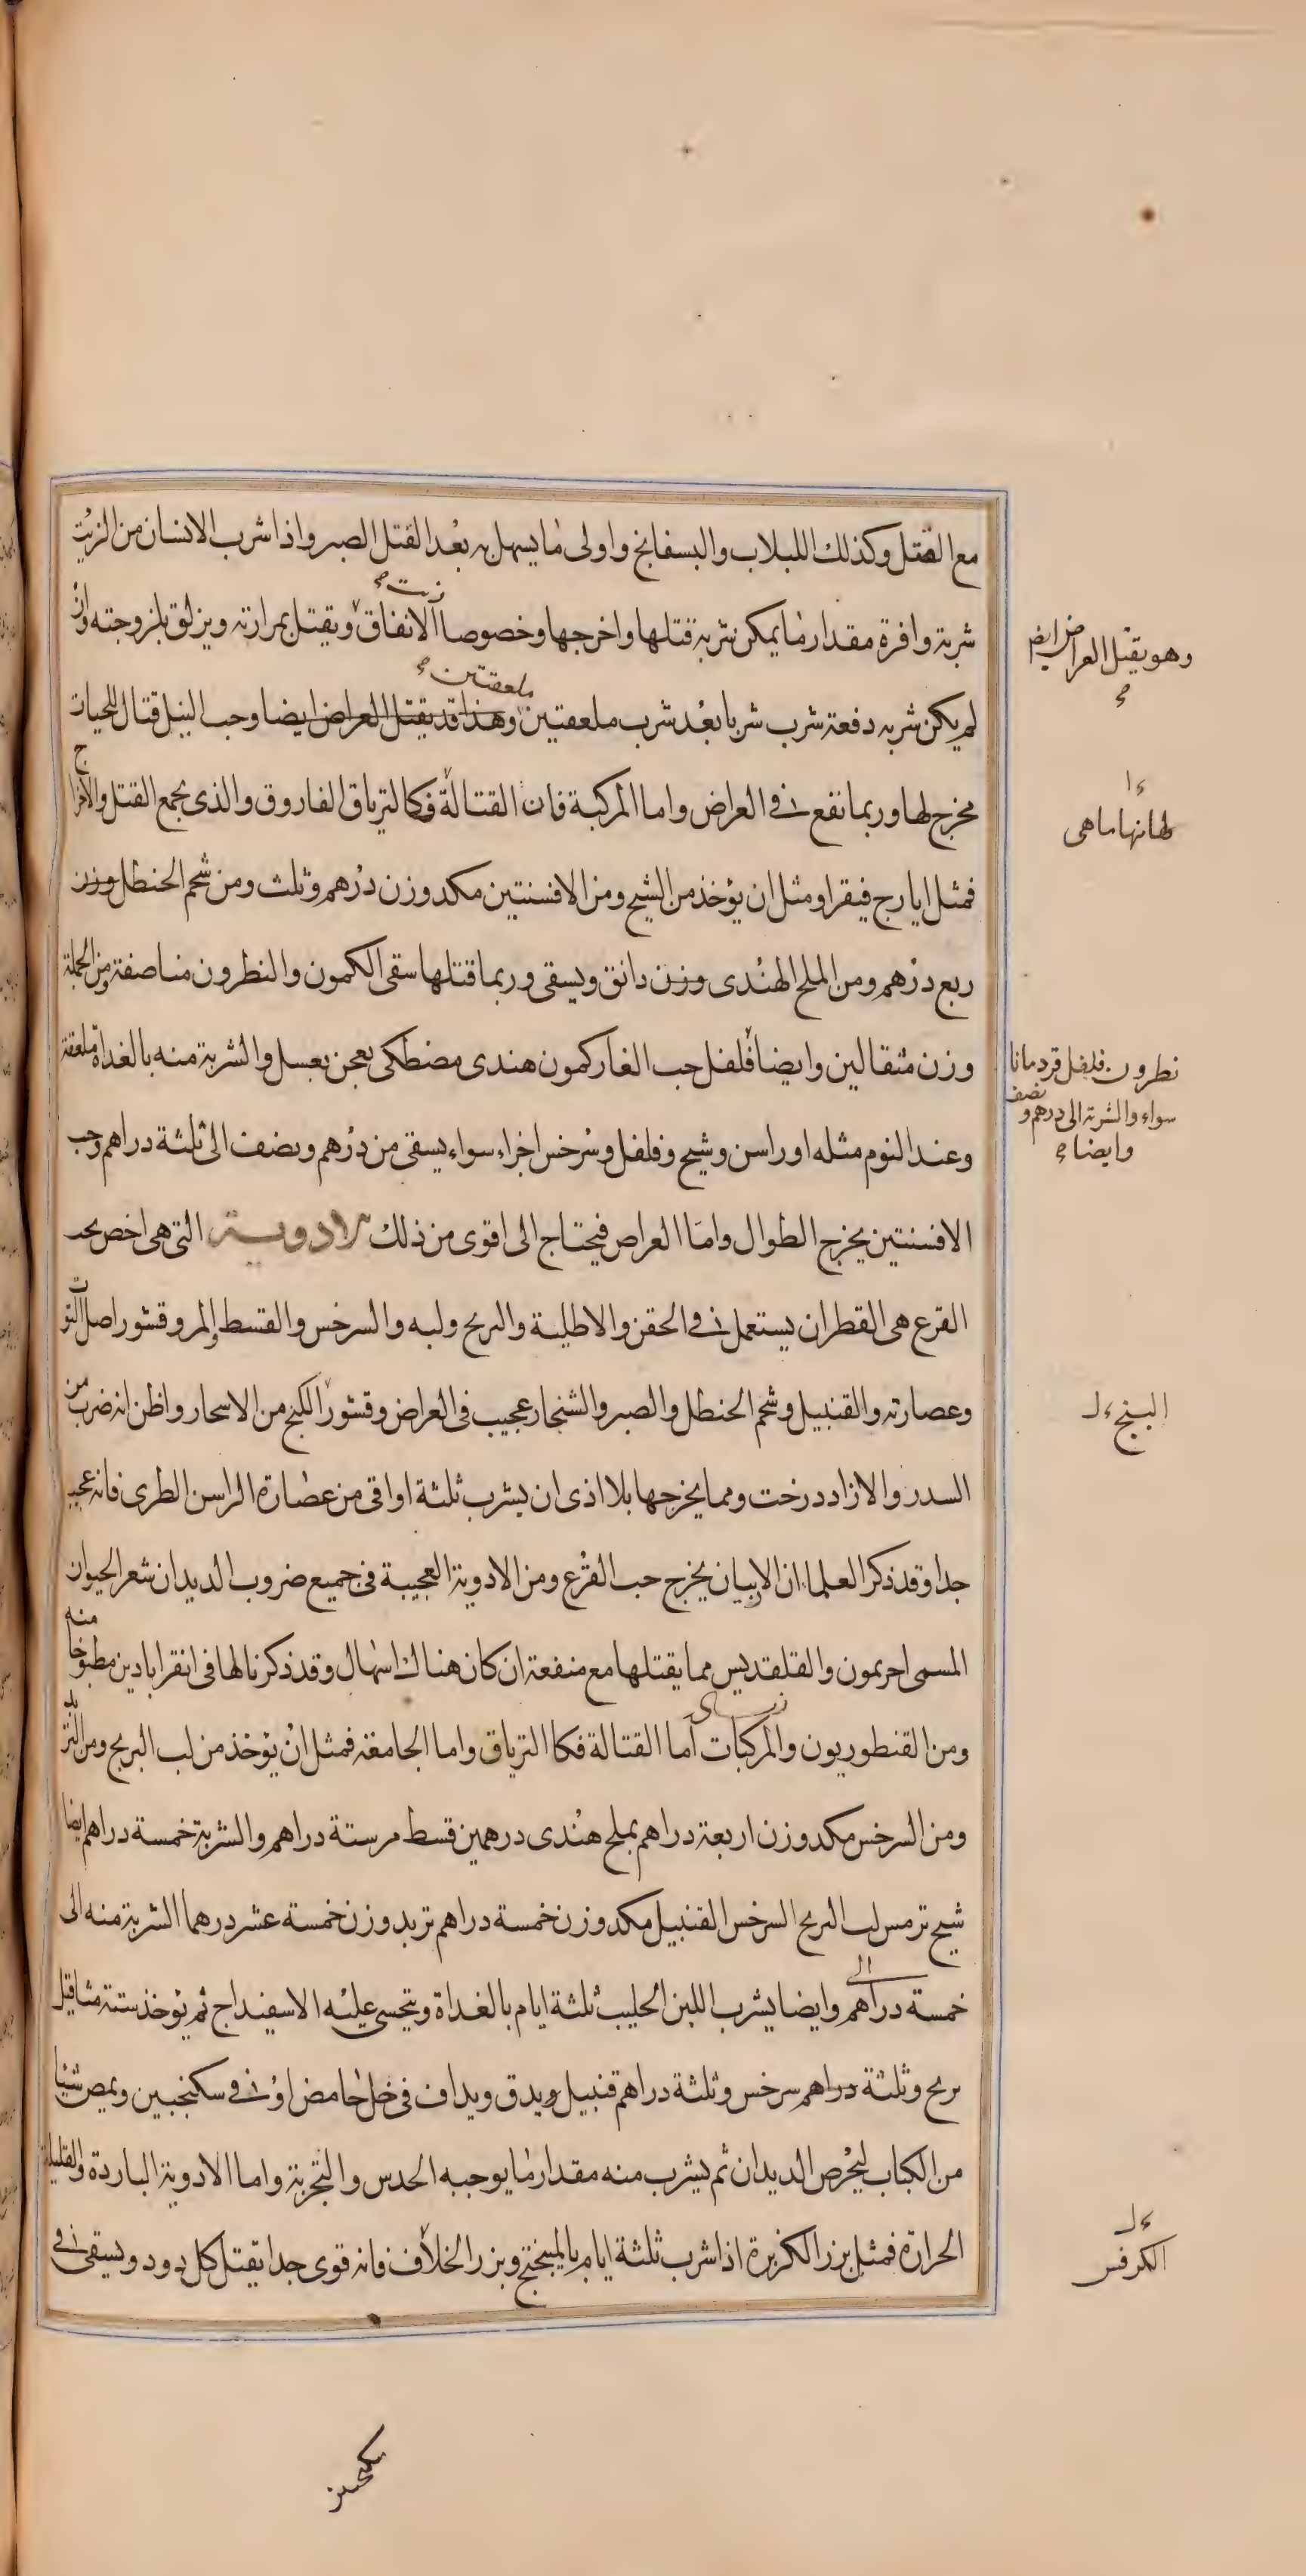 مع القتل وكذلك اللبلاب والبسفايج واولى ما يسهل به بعد القتل الصبر واذا شرب الانسان من الزيت
شربة وافرة مقدار ما يمكن شربه قتلها واخرجها وخصوصا الانفاق ويقتل بمرارته ويزلق بلزوجته وان
زيت
لم يكن شربه دفعة شرب شربا بعد شرب ملعقتين وهذا قد يقتل العراض ايضا وحب النيل قتال للحيات
ملعقتين
مخرج لها وربما نفع في العراض واما المركبة فان القتالة فكالترياق الفاروق والذى يجمع القتل والاخراج
فمثل ايارج فيقرا ومثل ان يؤخذ من الشيح ومن الافسنتين مكد وزن درهم وثلث ومن شحم الحنطل وزن
ربع درهم ومن الملح الهندى وزن دانق ويسقى وربما قتلها سقى الكمون والنطرون مناصفة ومن الجملة
وزن مثقالين وايضا فلفل حب الغار كمون هندى مصطكى يعجن بعسل والشربة منه بالغداة ملعقة
وعند النوم مثله او راسن وشيح وفلفل وسرخس اجزاء سواء يسقى من درهم ونصف الى ثلثة دراهم وحب
الافسنتين يخرج الطوال واما العراض فيحتاج الى اقوى من ذلك الادوية التى هى اخص بحب
القرع هى القطران يستعمل في الحقن والاطلية والبرنج ولبه والسرخس والقسط المر وقشور اصل التوت
وعصارته والقنبيل وشحم الحنطل والصبر والشنجار عجيب فى العراض وقشور الكبج من الاسحار واظن انه ضرب من
السدر والازاددرخت ومما يخرجها بلا اذى ان يشرب ثلثة اواقى من عصارة الراسن الطرى فانه عجيب
جدا وقد ذكر العلماء ان الاربيان يخرج حب القرع ومن الادوية العجيبة فى جميع ضروب الديدان شعر الحيوان
المسمى احريمون والقلقديس مما يقتلها مع منفعة ان كان هناك اسهال وقد ذكرنا لها فى انقرابادين مطبوخا منه
ومن القنطوريون والمركبات اما القتالة فكا الترياق واما الجامعة فمثل ان يؤخذ من لب البرنج ومن التربد
ومن السرخس مكد وزن اربعة دراهم بملح هندى درهمين قسط مر ستة دراهم والشربة خمسة دراهم ايضا
شيح ترمس لب البرنج السرخس القنبيل مكد وزن خمسة دراهم تربد وزن خمسة عشر درهما الشربة منه الى
خمسة دراهم وايضا يشرب اللبن الحليب ثلثة ايام بالغداة ويتحسى عليه الاسفيداج ثم يؤخذ ستة مثاقيل
برنج وثلثة دراهم سرخس وثلثة دراهم قنبيل ويدق ويداف فى خل حامض او في سكنجبين ويمص شيئا
من الكباب ليحرص الديدان ثم يشرب منه مقدار ما يوجبه الحدس والتجربة واما الادوية الباردة والقليلة
الحرارة فمثل بزر الكزبرة اذا شرب ثلثة ايام بالميبختج وبزر الخلاف فانه قوى جدا يقتل كل دود ويسقى في
وهو يقتل العراض ايضا
لها منها ما هى
نطرون فلفل قردمانا
سواء والشربة الى درهم ونصف
وايضا
البنج
الكرفس
سكنجبين